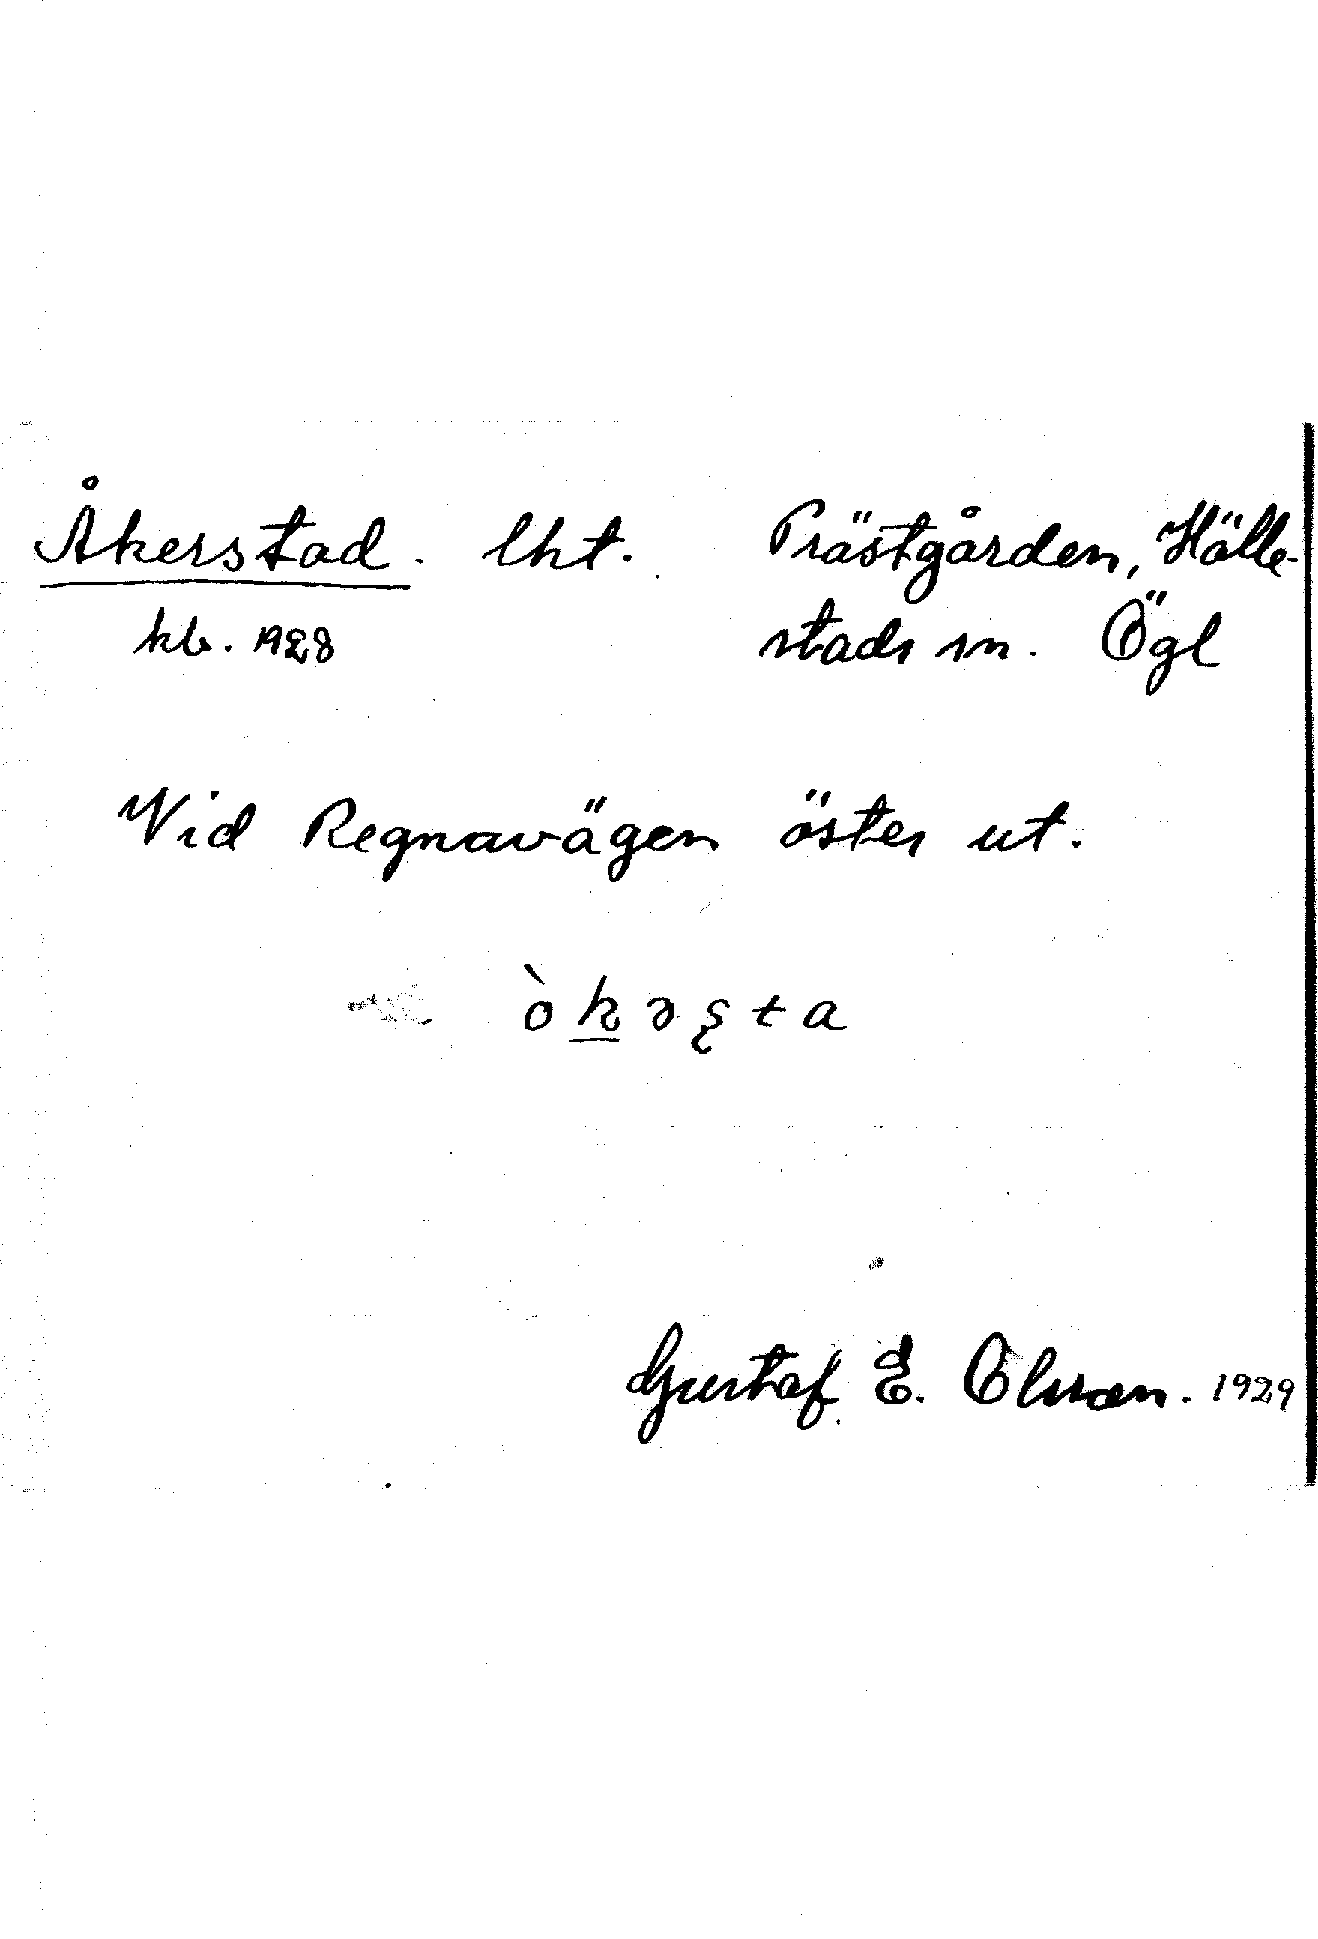 Åkerstad. lht. Prästgården, Hälle-
kb. 1928 stads sn. Ögl
Vid Regnavägen öster ut.
òkəʂta
Gustaf E. Olsson. 1929